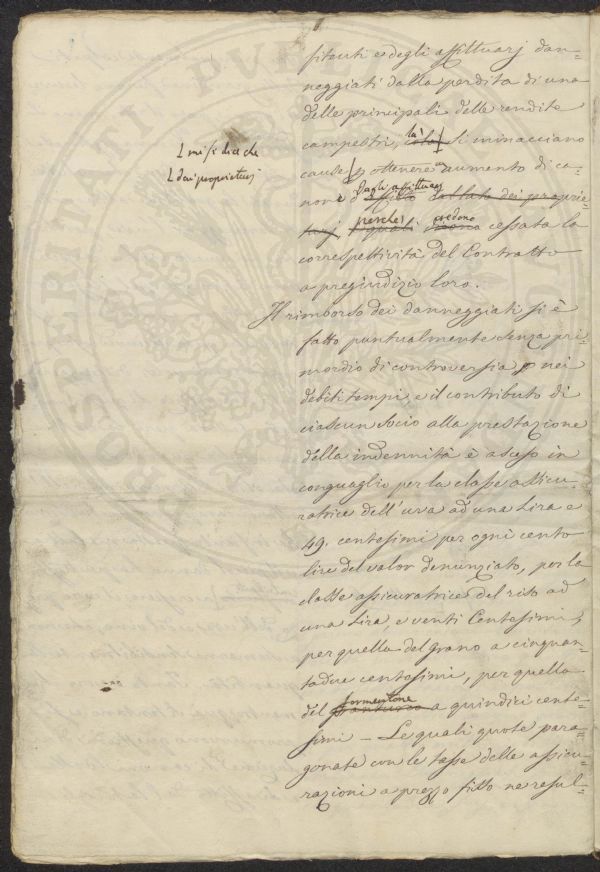 sitenti e degli affittuarj dan=
neggiati dalla perdita di una
delle principali delle rendite
campestri, là si minacciano
cause p ottenere aumento di ca=
none d'affitto dal lato dei proprie=
dagli affittuarj
tarj, i quali cessata la
perchè credono
corresponsività del Contratto
a pregiudizio loro.
Il rimborso dei danneggiati si è
fatto puntualmente senza pri=
mordio di controversia, e nei
debiti tempi, e il contributo di
ciascun socio alla prestazione
della indennità è asceso in
conguaglio per la classe assicu=
ratrice dell'uva ad una Lira e
49. centesimi per ogni cento
lire del valor denunziato, per la
classe assicuratrice del riso ad
una Lira, e venti Centesimi,
per quella del grano a cinquan=
tadue centesimi, per quella
del formentone a quindici cente=
simi – Le quali quote para=
gonate con le tasse delle assicu=
razioni a prezzo fitto ne resul=
mi si dia che
dai proprietarj
PROSPERITATI PVBL